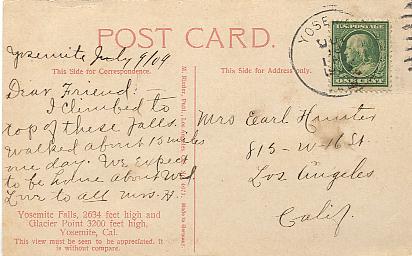 POST CARD.
This Side for Correspondence.
This Side for Address only.
Yosemite July 9/09
Dear Friend:—
I climbed to
top of these falls.
Walked about 15 miles
one day. We expect
to be home about Wed
Love to all Mrs. H.
Yosemite Falls, 2634 feet high and
Glacier Point 3200 feet high,
Yosemite, Cal.
This view must be seen to be appreciated. It
is without compare.
M. Rieder, Publ., Los Angeles,
Made in Germany.
YOSE
U.S. POSTAGE
ONE CENT
Mrs Earl Hunter
815- W- 16 St.
Los Angeles
Calif.